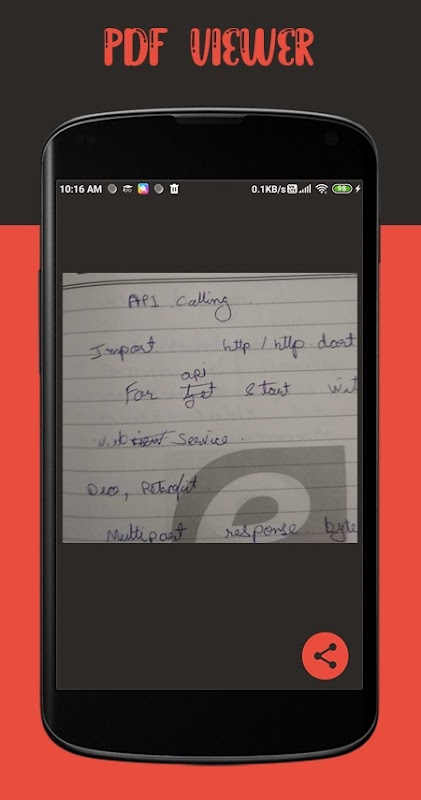 PDF VIEWER
10:16 AM 0.1KB/s 98
API Calling
Import http / http dart
api
For get Start wit
Service
Dio, Retrofit
Multipart response byte